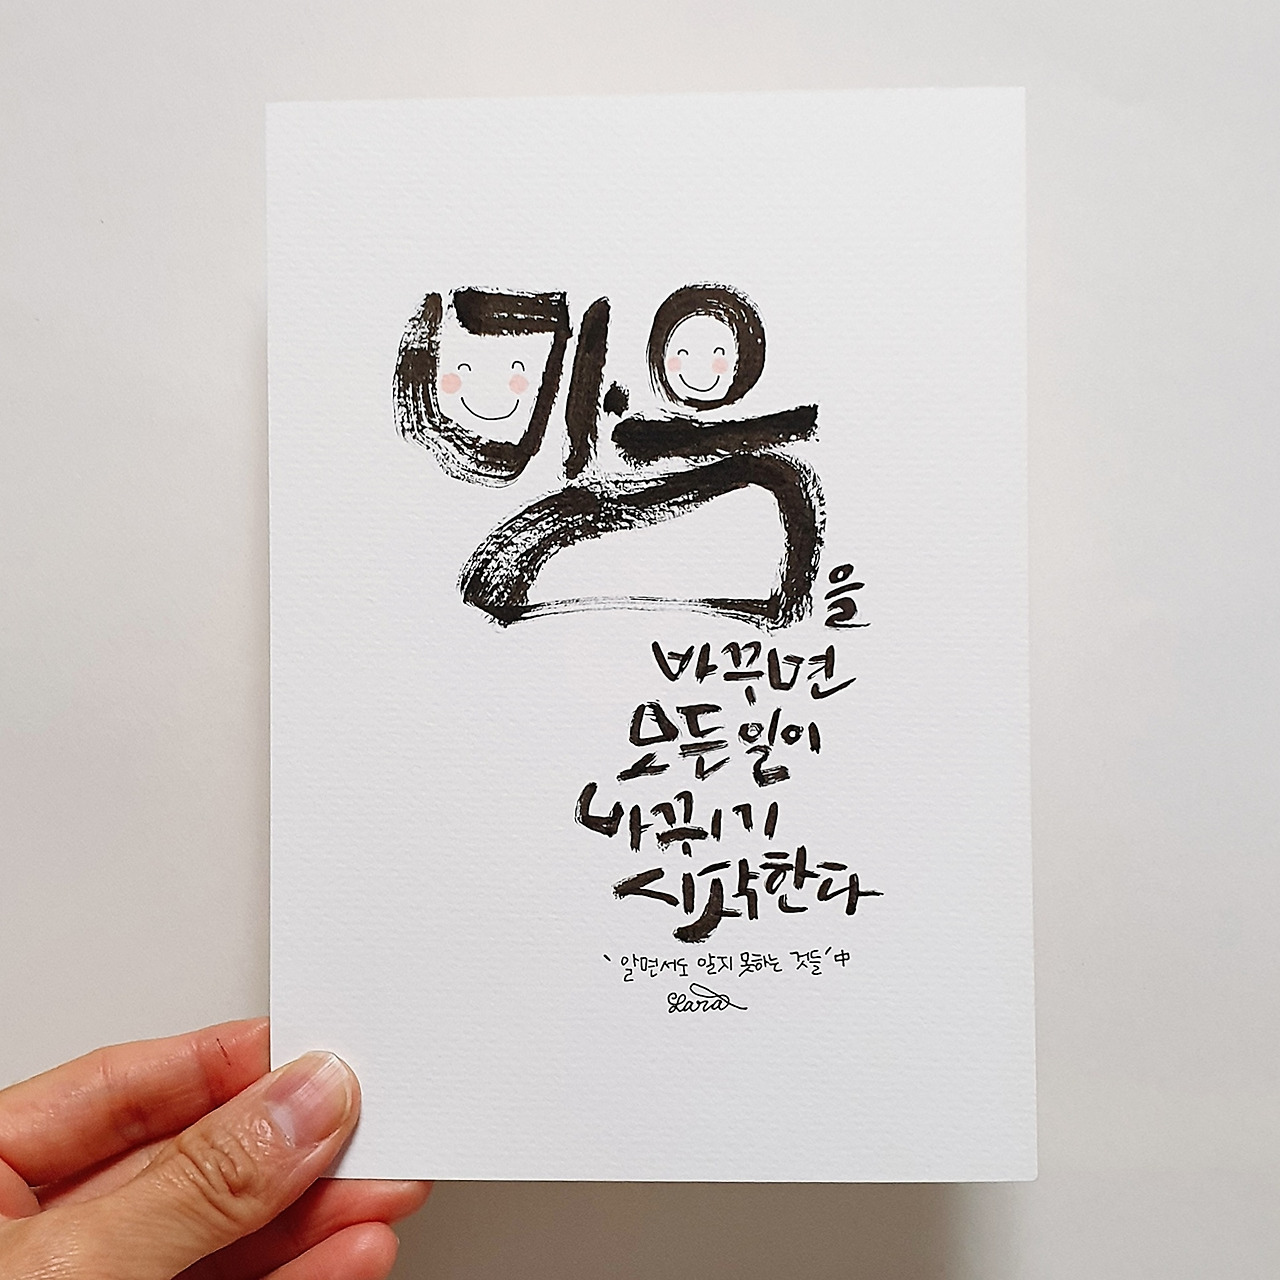 마음을
바꾸면
모든 일이
바뀌기
시작한다
'알면서도 알지 못하는 것들' 中
Lara